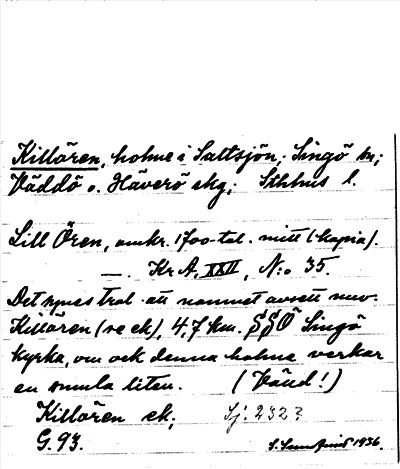 Killören, holme i Saltsjön; Singö sn;
Väddö o. Häverö skg; Sthlms l.
Lill Ören, omkr. 1700-tal. mitt (kopia).
— . Kr A, XXII, N:o 35.
Det synes trol. att namnet avsett nuv.
Killören (se ek), 4,7 km. SSO Singö
kyrka, om ock denna holme verkar
en smula liten. (Vänd!)
Killören ek; Sj. 232?
G. 93. 1936.